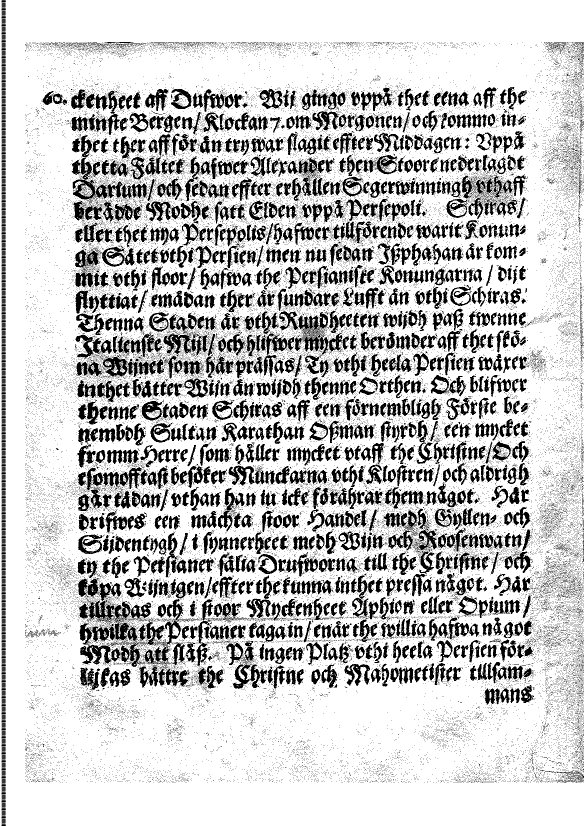 60. ckenheet aff Dufwor. Wij gingo vppå thet eena aff the
minste Bergen/ Klockan 7. om Morgonen/ och kommo in-
thet ther aff för än try war slagit effter Middagen: Vppå
thetta Fältet hafwer Alexander then Stoore nederlagdt
Darium/ och sedan effter erhållen Segerwinningh vthaff
berådde Modhe satt Elden vppå Persepoli. Schiras/
eller thet nya Persepolis/ hafwer tillförende warit Konun-
ga Sätet vthi Persien/ men nu sedan Jßphahan är kom-
mit vthi floor/ hafwa the Persianiske Konungarna/ dijt
flyttiat/ emädan ther är sundare Lufft än vthi Schiras.
Thenna Staden är vthi Rundheeten wijdh paß twenne
Jtalienske Mijl/ och blifwer mycket berömder aff thet skö-
na Wijnet som här prässas/ Ty vthi heela Persien wäxer
inthet bätter Wijn än wijdh thenne Orthen. Och blifwer
thenne Staden Schiras aff een förnembligh Förste be-
nembdh Sultan Karathan Oßman styrdh/ een mycket
fromm Herre/ som håller mycket vtaff the Christne/ Och
esomofftast besöker Munckarna vthi Klostren/ och aldrigh
går tädan/ vthan han iu icke förährar them något. Här
drifwes een mächta stoor Handel/ medh Gyllen- och
Sijdentygh/ i synnerheet medh Wijn och Roosenwatn/
ty the Persianer sälia Drufworna till the Christne/ och
köpa Wijn igen/ effter the kunna inthet pressa något. Här
tillredas och i stoor Myckenheet Aphion eller Opium/
hwilka the Persianer taga in/ enär the willia hafwa något
Modh att slåß. På ingen Platz vthi heela Persien för-
lijkas bättre the Christne och Mahometister tillsam-
mans